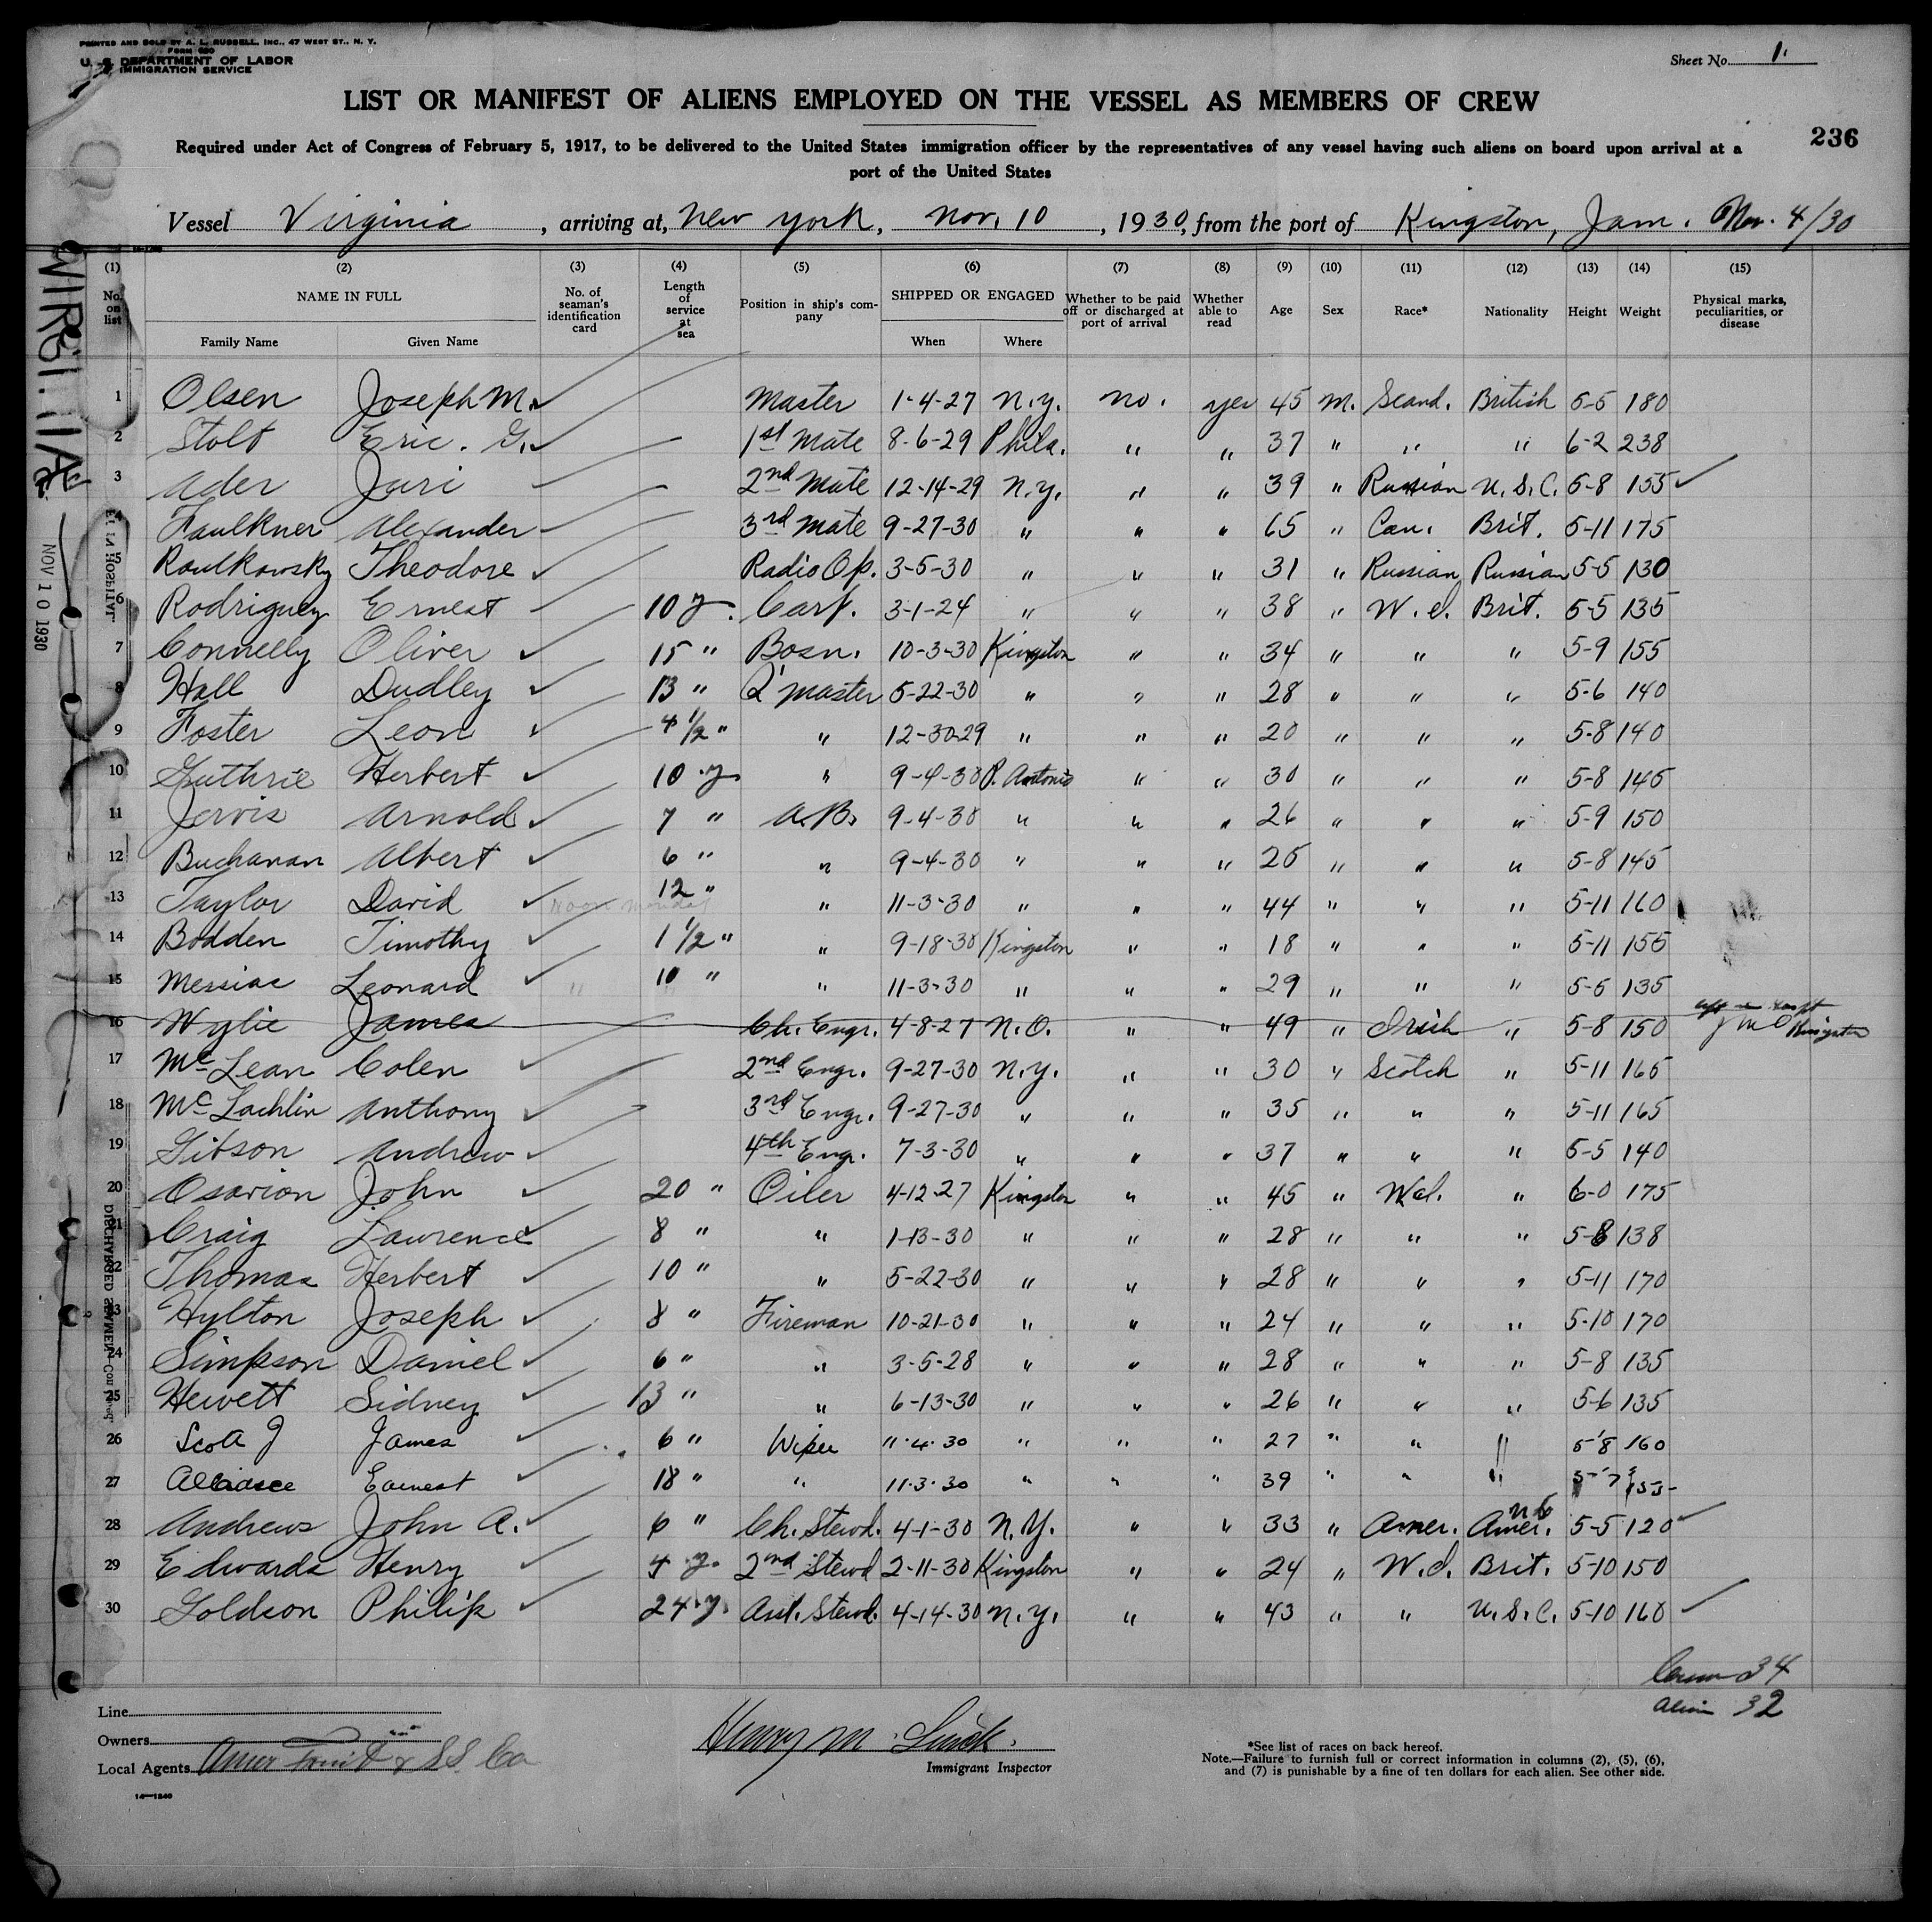 PRINTED AND SOLD BY A. L. RUSSELL, INC., 47 WEST ST., N. Y.
FORM 680
U. S. DEPARTMENT OF LABOR
IMMIGRATION SERVICE
Sheet No. 1.
LIST OR MANIFEST OF ALIENS EMPLOYED ON THE VESSEL AS MEMBERS OF CREW
236
Required under Act of Congress of February 5, 1917, to be delivered to the United States immigration officer by the representatives of any vessel having such aliens on board upon arrival at a
port of the United States
Vessel Virginia, arriving at, New York, Nov. 10, 1930, from the port of Kingston, Jam. Nov. 4/30
(1) (2) (3) (4) (5) (6) (7) (8) (9) (10) (11) (12) (13) (14) (15)
No. on list NAME IN FULL Family Name Given Name No. of seaman's identification card Length of service at sea Position in ship's company SHIPPED OR ENGAGED When Where Whether to be paid off or discharged at port of arrival Whether able to read Age Sex Race* Nationality Height Weight Physical marks, peculiarities, or disease
1 Olsen Joseph M. Master 1-4-27 N.Y. no. yes 45 M. Scand. British 5-5 180
2 Stolt Eric. G. 1st Mate 8-6-29 Phila. " " 37 " " " 6-2 238
3 Ader Juri 2nd Mate 12-14-29 N.Y. " " 39 " Russian U.S.C. 5-8 155
4 Faulkner Alexander 3rd Mate 9-27-30 " " " 65 " Can. Brit. 5-11 175
5 Raulkowsky Theodore Radio Op. 3-5-30 " " " 31 " Russian Russian 5-5 130
6 Rodriguez Ernest 10 y. Carp. 3-1-24 " " " 38 " W.I. Brit. 5-5 135
7 Connelly Oliver 15 " Bosn. 10-3-30 Kingston " " 34 " " " 5-9 155
8 Hall Dudley 13 " Q'master 5-22-30 " " " 28 " " " 5-6 140
9 Foster Leon 4 1/2 " " 12-30-29 " " " 20 " " " 5-8 140
10 Guthrie Herbert 10 y " 9-4-30 P. Antonio " " 30 " " " 5-8 145
11 Jervis Arnold 7 " A.B. 9-4-30 " " " 26 " " " 5-9 150
12 Buchanan Albert 6 " " 9-4-30 " " " 25 " " " 5-8 145
13 Taylor David 12 " " 11-3-30 " " " 44 " " " 5-11 160
14 Bodden Timothy 1 1/2 " " 9-18-30 Kingston " " 18 " " " 5-11 155
15 Messiac Leonard 10 " " 11-3-30 " " " 29 " " " 5-5 135
16 Wylie James Ch. Engr. 4-8-27 N.O. " " 49 " Irish " 5-8 150 Kingston
17 McLean Colen 2nd Engr. 9-27-30 N.Y. " " 30 " Scotch " 5-11 165
18 McLachlin Anthony 3rd Engr. 9-27-30 " " " 35 " " " 5-11 165
19 Gibson Andrew 4th Engr. 7-3-30 " " " 37 " " " 5-5 140
20 Osarion John 20 " Oiler 4-12-27 Kingston " " 45 " W.I. " 6-0 175
21 Craig Lawrence 8 " " 1-13-30 " " " 28 " " " 5-8 138
22 Thomas Herbert 10 " " 5-22-30 " " " 28 " " " 5-11 170
23 Hylton Joseph 8 " Fireman 10-21-30 " " " 24 " " " 5-10 170
24 Simpson Daniel 6 " " 3-5-28 " " " 28 " " " 5-8 135
25 Hewett Sidney 13 " " 6-13-30 " " " 26 " " " 5-6 135
26 Scott J James 6 " Wiper 11.4.30 " " " 27 " " " 5'8 160
27 Earnest 18 " " 11.3.30 " " " 39 " " " 5-7 155
28 Andrews John A. 6 " Ch. Stewd. 4-1-30 N.Y. " " 33 " Amer. Amer. 5-5 120
29 Edwards Henry 4 y. 2nd Stewd 2-11-30 Kingston " " 24 " W.I. Brit. 5-10 150
30 Goldson Philip 24 y. Asst. Stewd. 4-14-30 N.Y. " " 43 " " U.S.C. 5-10 160
34
Alien 32
Line
Owners
Local Agents Amer Fruit & S.S. Co
Henry M.
Immigrant Inspector
*See list of races on back hereof.
Note.—Failure to furnish full or correct information in columns (2), (5), (6),
and (7) is punishable by a fine of ten dollars for each alien. See other side.
14—1240
VIRGINIA
NOV 10 1930